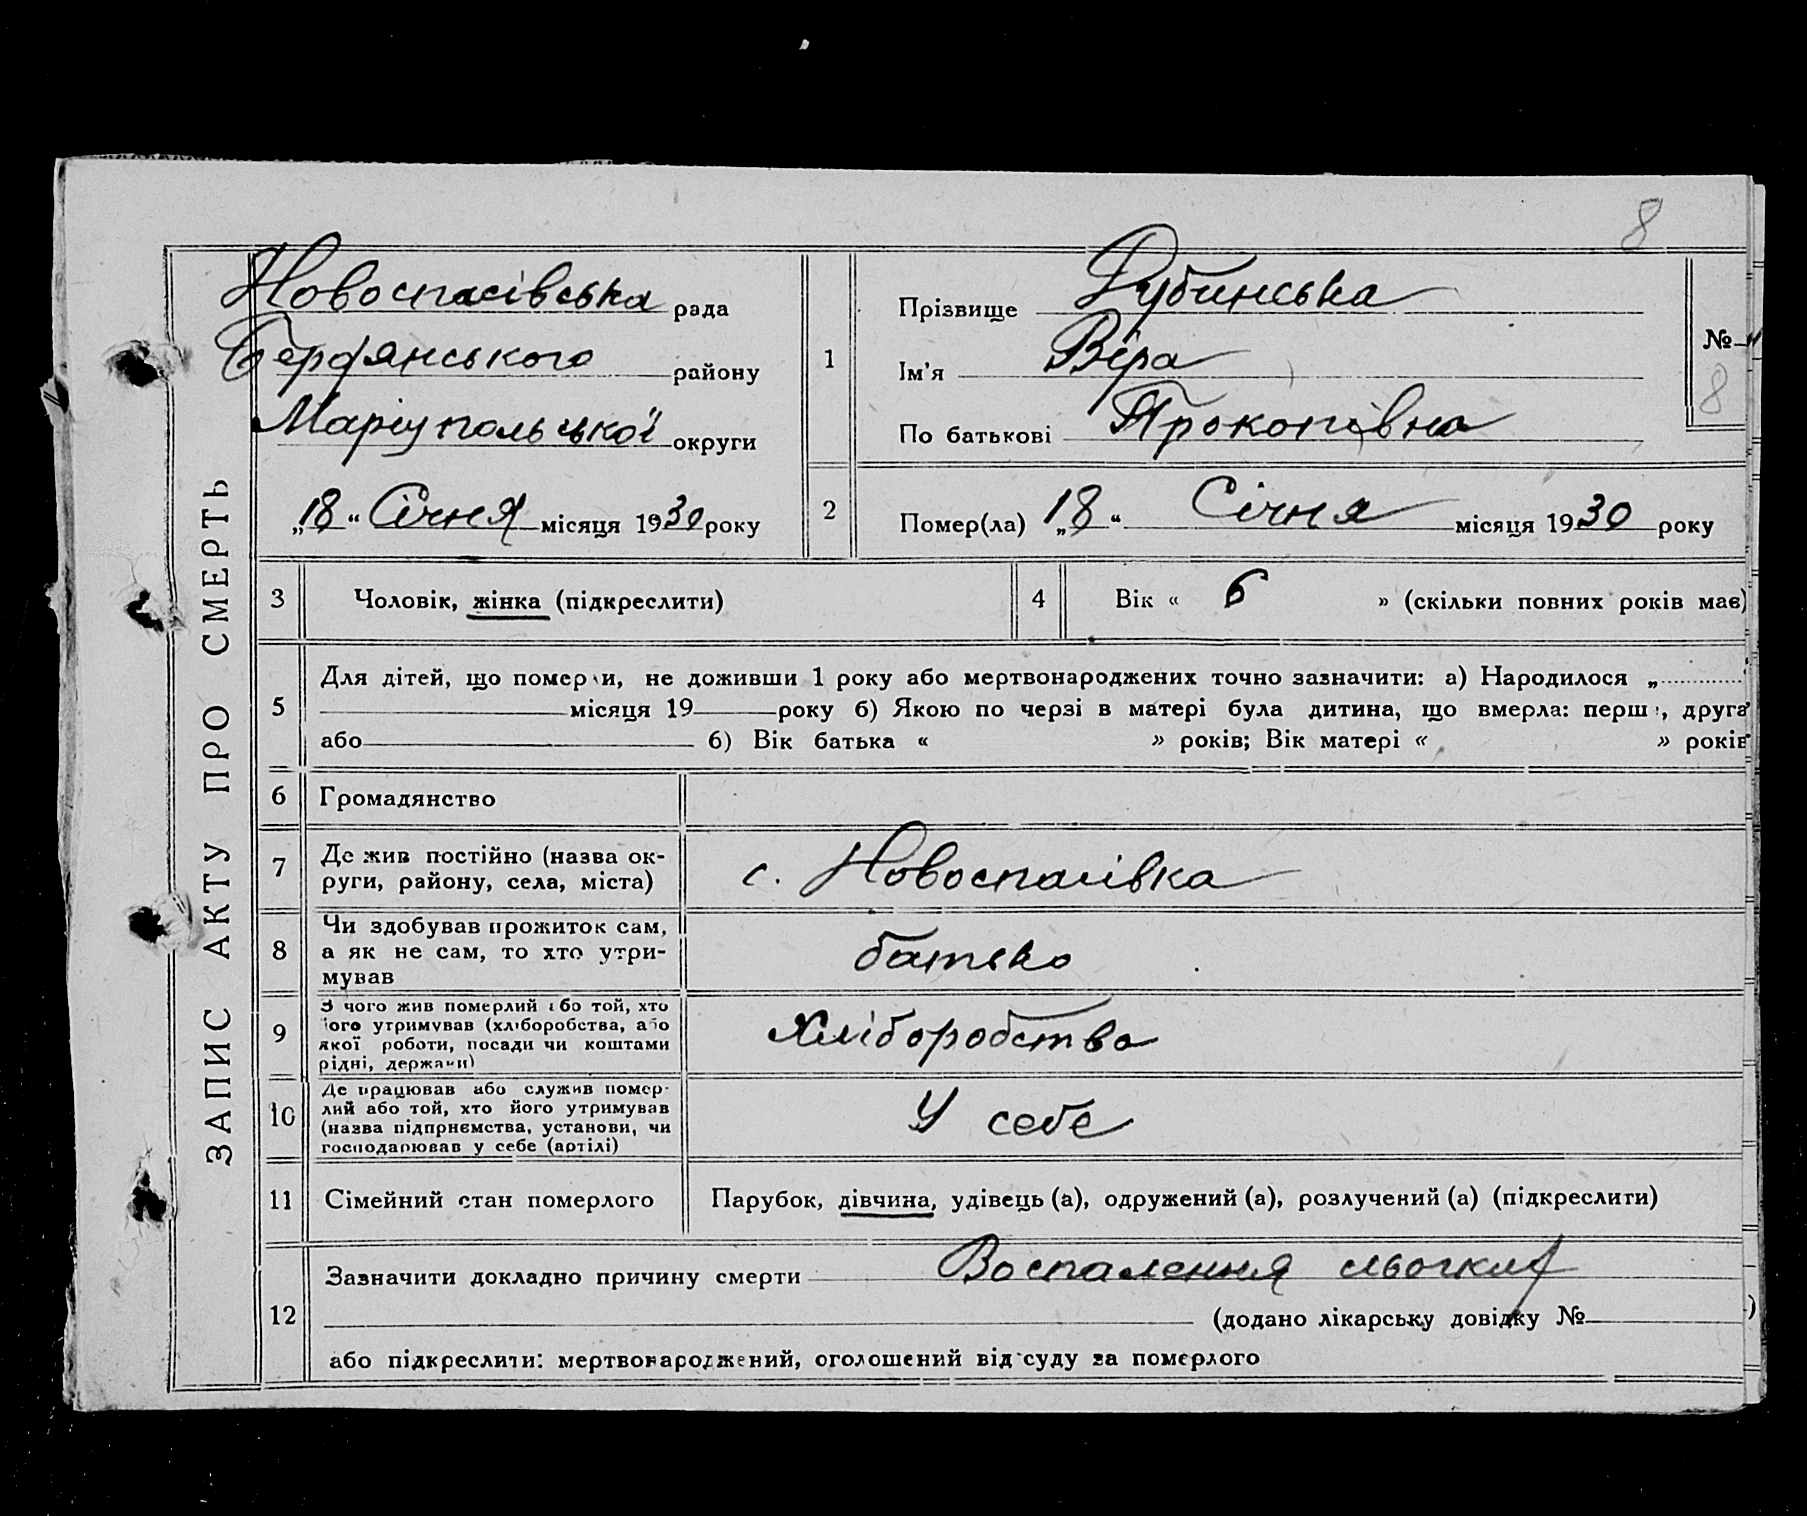 8
ЗАПИС АКТУ ПРО СМЕРТЬ
Новоспасівська рада
Бердянського району
Маріупольської округи
„18“ Січня місяця 1930 року
1
Прізвище Дубинська
Ім'я Віра
По батькові Прокопівна
№
8
2
Помер(ла) „18“ Січня місяця 1930 року
3 Чоловік, жінка (підкреслити)
4 Вік « 6 » (скільки повних років має)
5
Для дітей, що померли, не доживши 1 року або мертвонароджених точно зазначити: а) Народилося „
місяця 19 року б) Якою по черзі в матері була дитина, що вмерла: перша, друга
або б) Вік батька « » років; Вік матері « » років
6 Громадянство
7
Де жив постійно (назва ок-
руги, району, села, міста)
с. Новоспасівка
8
Чи здобував прожиток сам,
а як не сам, то хто утри-
мував
батько
9
З чого жив померлий або той, хто
його утримував (хліборобства, або
якої роботи, посади чи коштами
рідні, держави)
Хліборобство
10
Де працював або служив помер-
лий або той, хто його утримував
(назва підприємства, установи, чи
господарював у себе (артілі)
У себе
11 Сімейний стан померлого
Парубок, дівчина, удівець (а), одружений (а), розлучений (а) (підкреслити)
12
Зазначити докладно причину смерти Воспалення льогких
(додано лікарську довідку №
або підкреслити: мертвонароджений, оголошений від суду за померлого